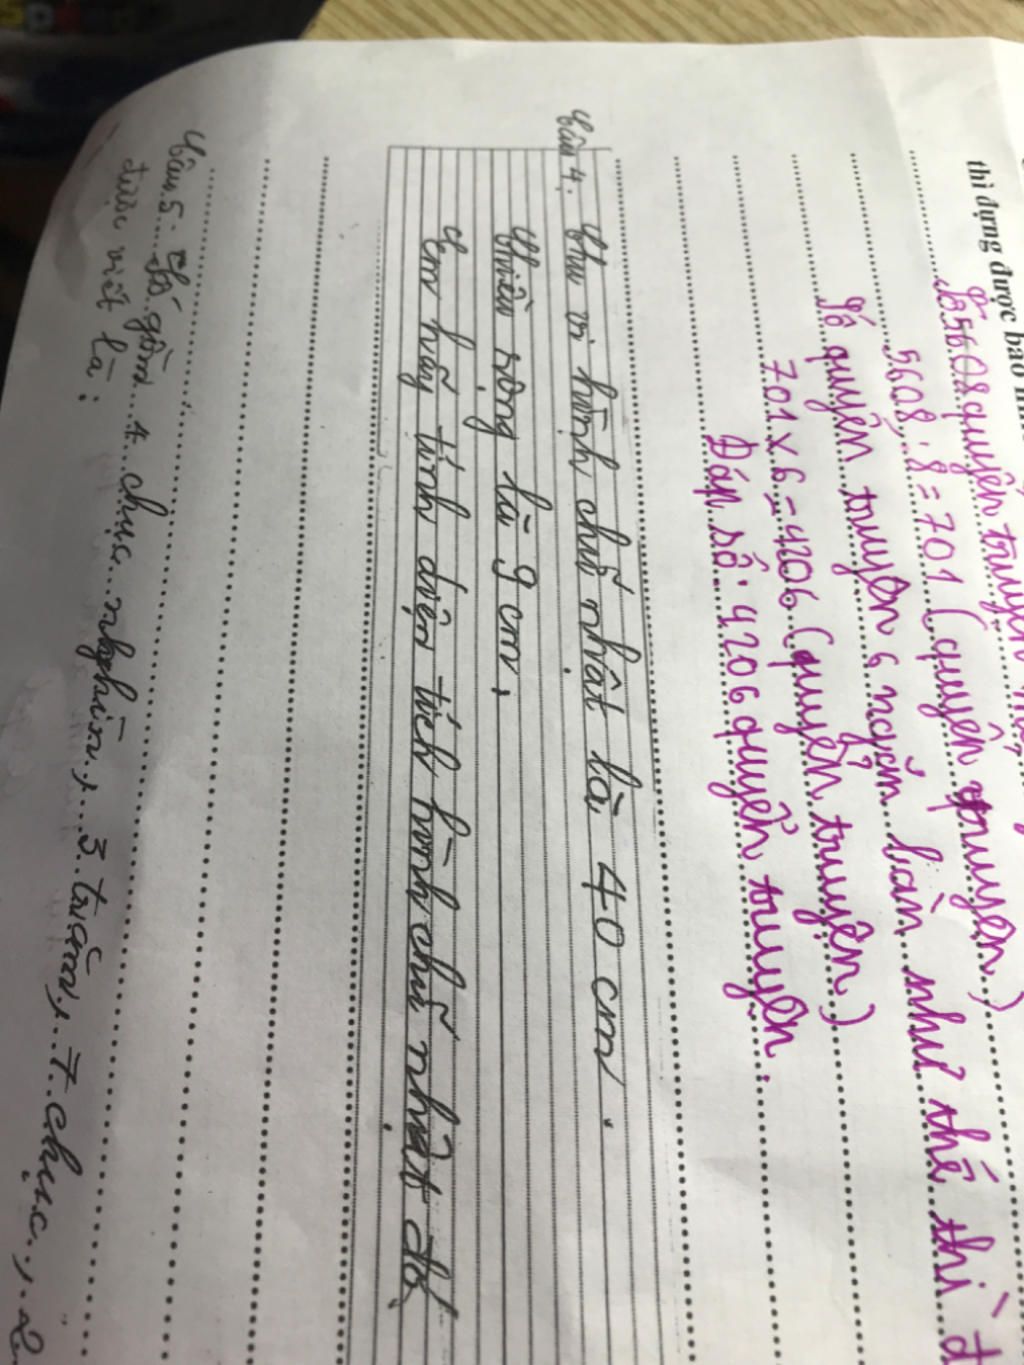 thì đựng được bao nhi
5608 quyển truyện
5608 : 8 = 701 (quyển truyện)
Số quyển truyện 6 ngăn bàn như thế thì đ
701 x 6 = 4206 (quyển truyện)
Đáp số: 4206 quyển truyện.
Câu 4. Chu vi hình chữ nhật là 40 cm.
Chiều rộng là 9 cm,
Em hãy tính diện tích hình chữ nhật đó.
Câu 5. Số gồm 4 chục nghìn, 3 trăm, 7 chục, 2
được viết là: